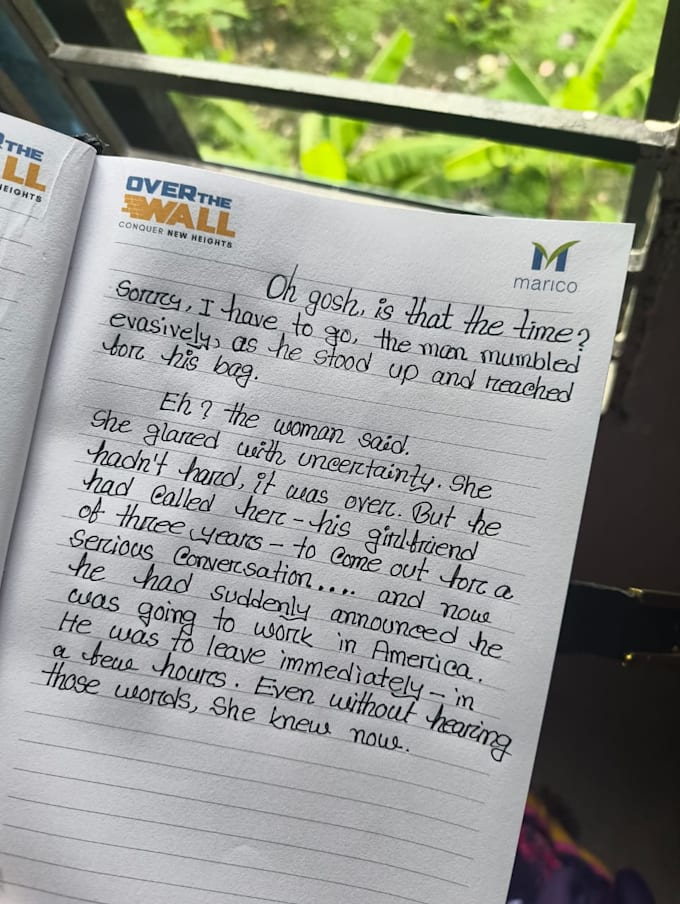 R THE
LL
EIGHTS
OVER THE
WALL
CONQUER NEW HEIGHTS
marico
Oh gosh, is that the time?
Sorry, I have to go, the man mumbled
evasively, as he stood up and reached
for his bag.
Eh? the woman said.
She glared with uncertainty. She
hadn't hard, it was over. But he
had called her - his girlfriend
of three years - to come out for a
serious conversation.... and now
he had suddenly announced he
was going to work in America.
He was to leave immediately - in
a few hours. Even without hearing
those words, she knew now.